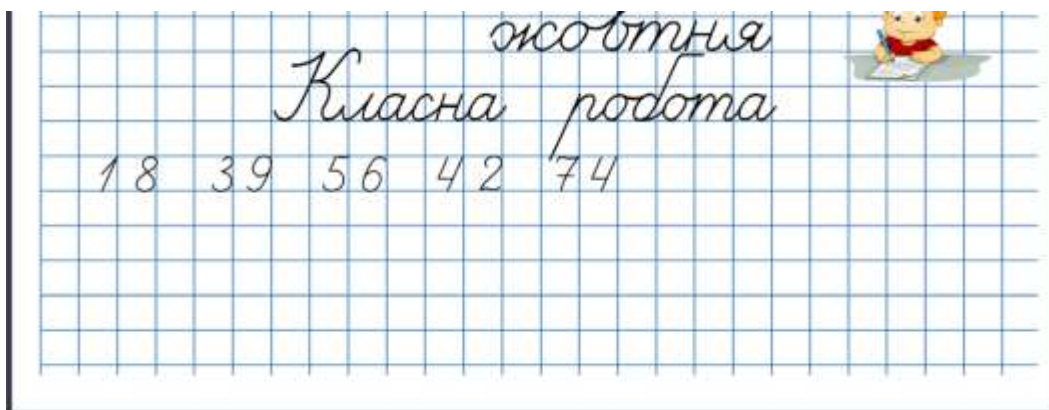 жовтня
Класна робота
18 39 56 42 74